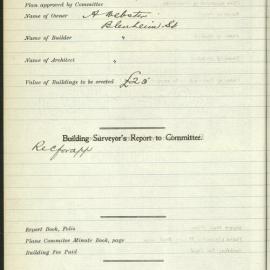 Plan approved by Committee
Name of Owner A Webster
Blenheim St
Name of Builder "
Name of Architect "
Value of Buildings to be erected £25
Building Surveyor's Report to Committee.
Rec for app
Report Book, Folio
Plans Commitee Minute Book, page
Building Fee Paid